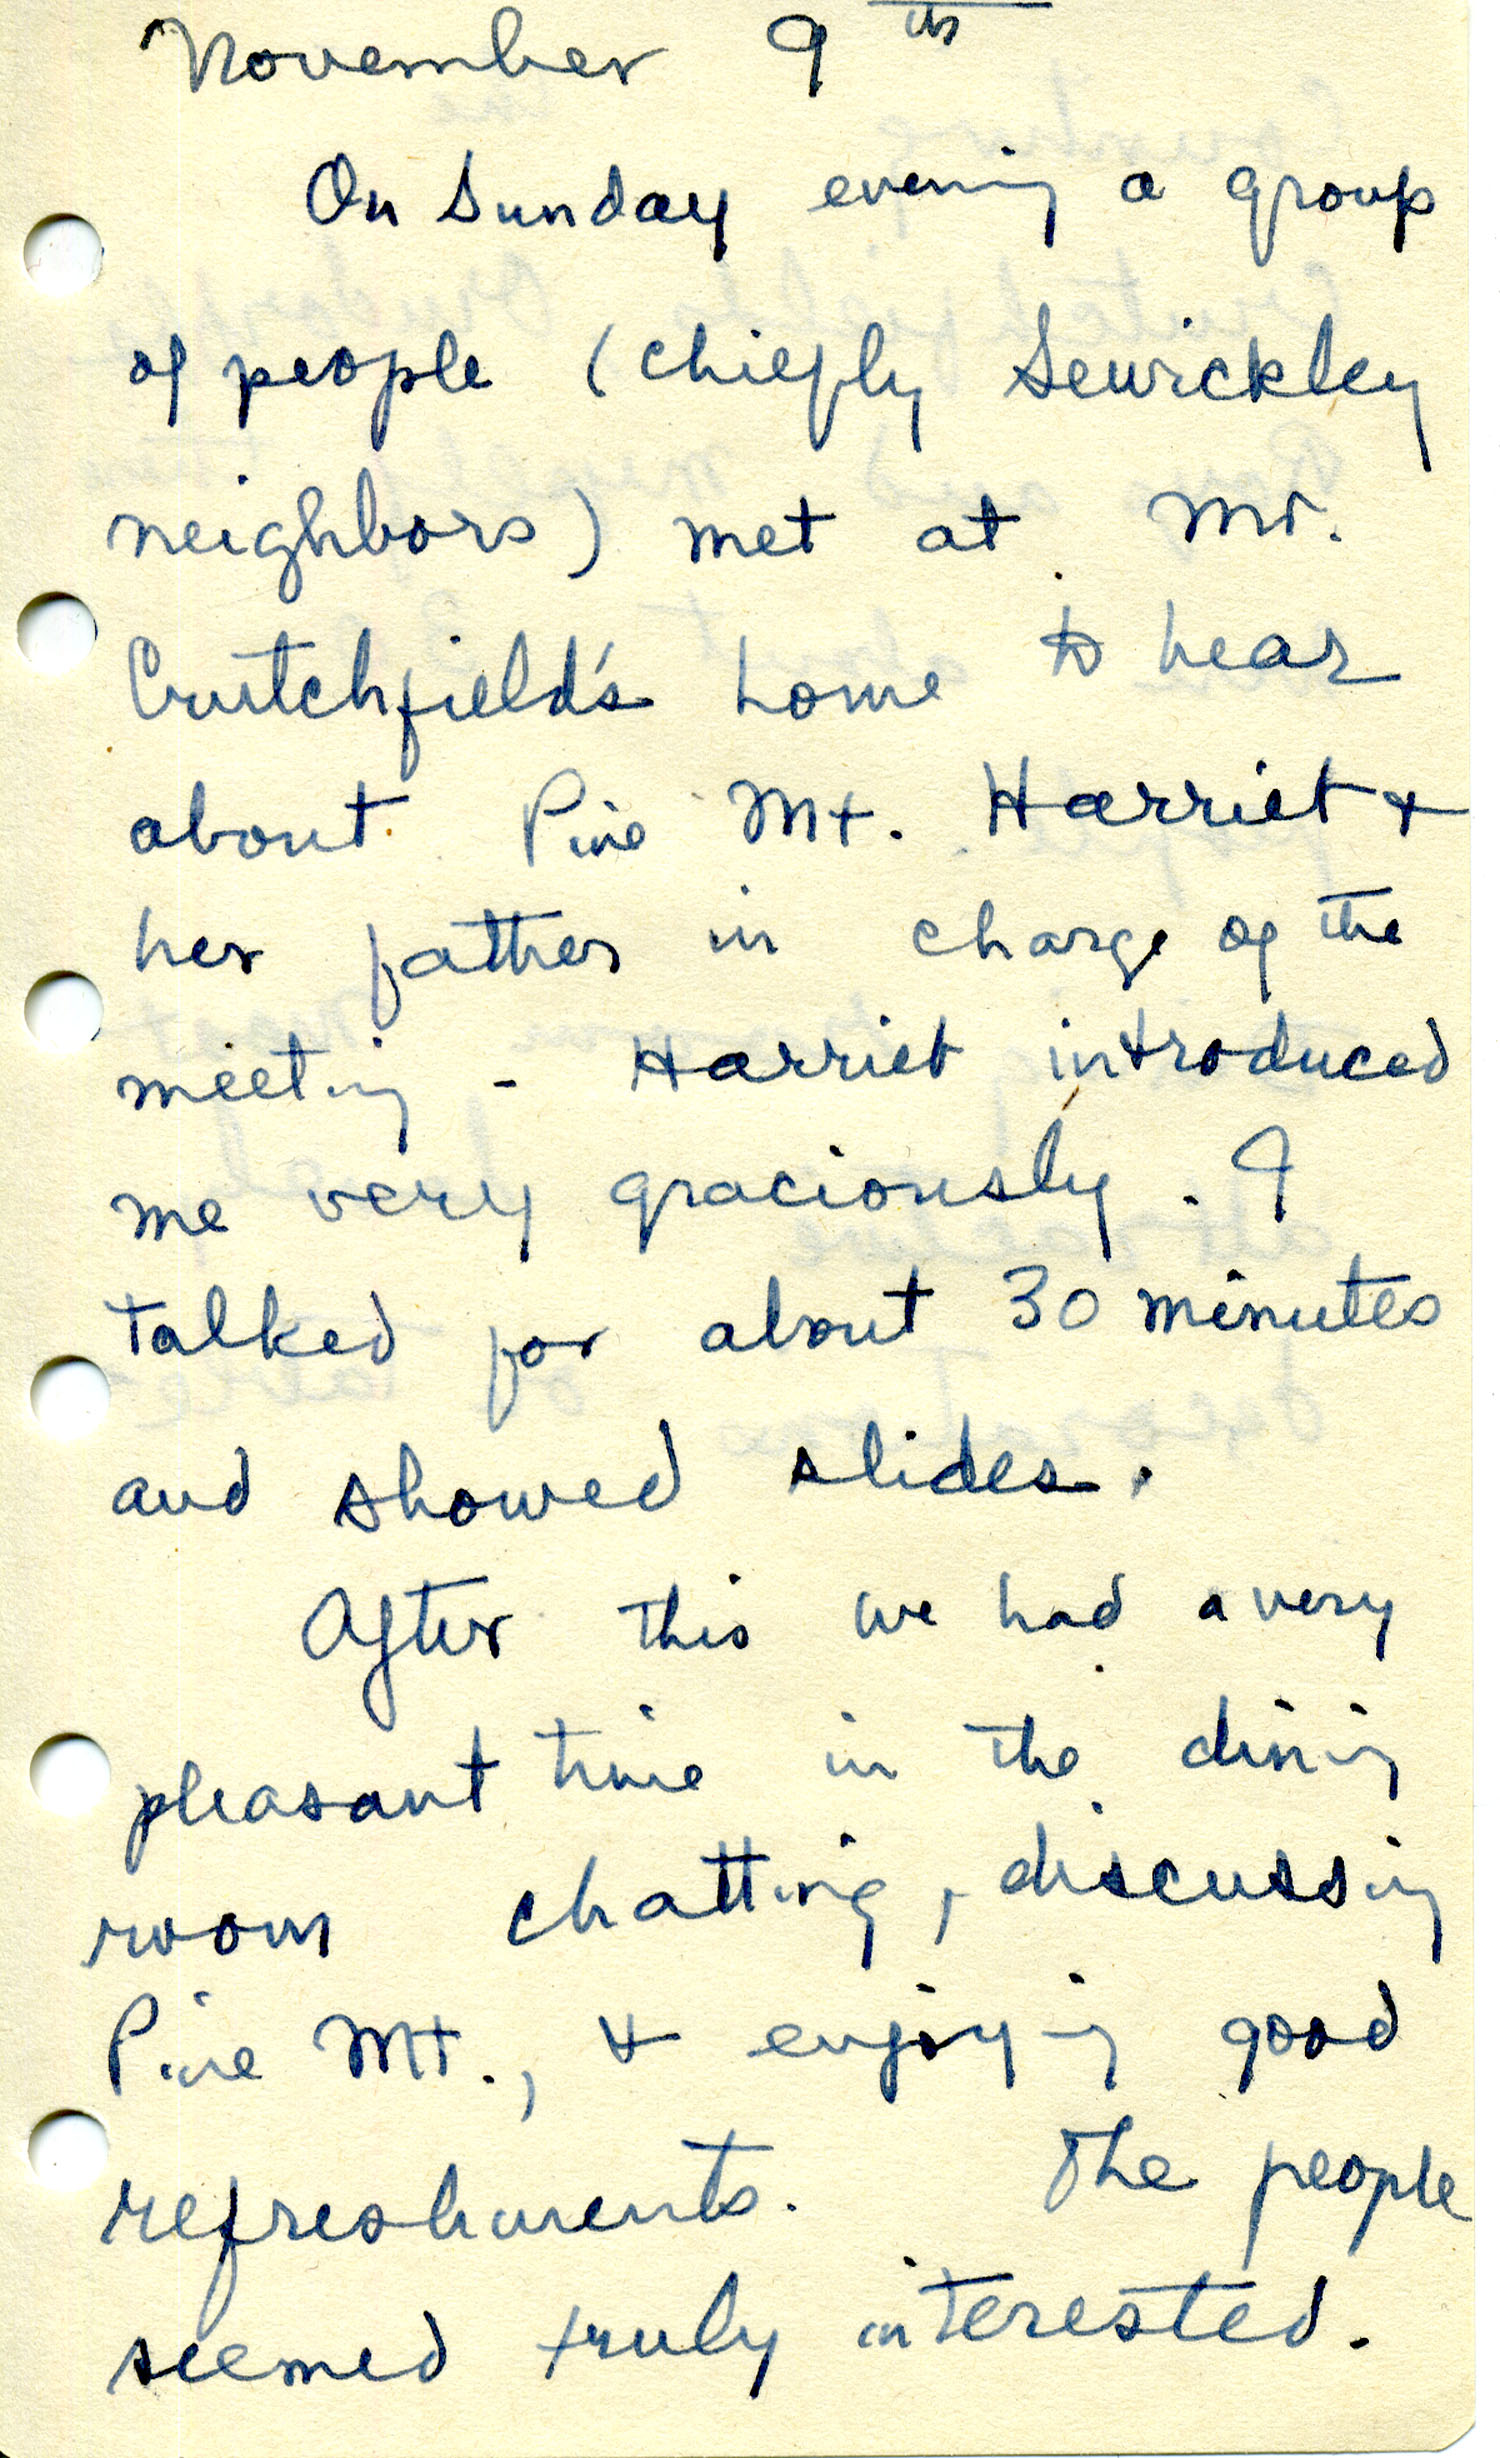 November 9th
On Sunday evening a group
of people (chiefly Sewickley
neighbors) met at Mr.
Crutchfield's home to hear
about Pine Mt. Harriet +
her father in charge of the
meeting - Harriet introduced
me very graciously. I
talked for about 30 minutes
and showed slides.
After this we had a very
pleasant time in the dining
room chatting, discussing
Pine Mt., + enjoying good
refreshments. The people
seemed truly interested.